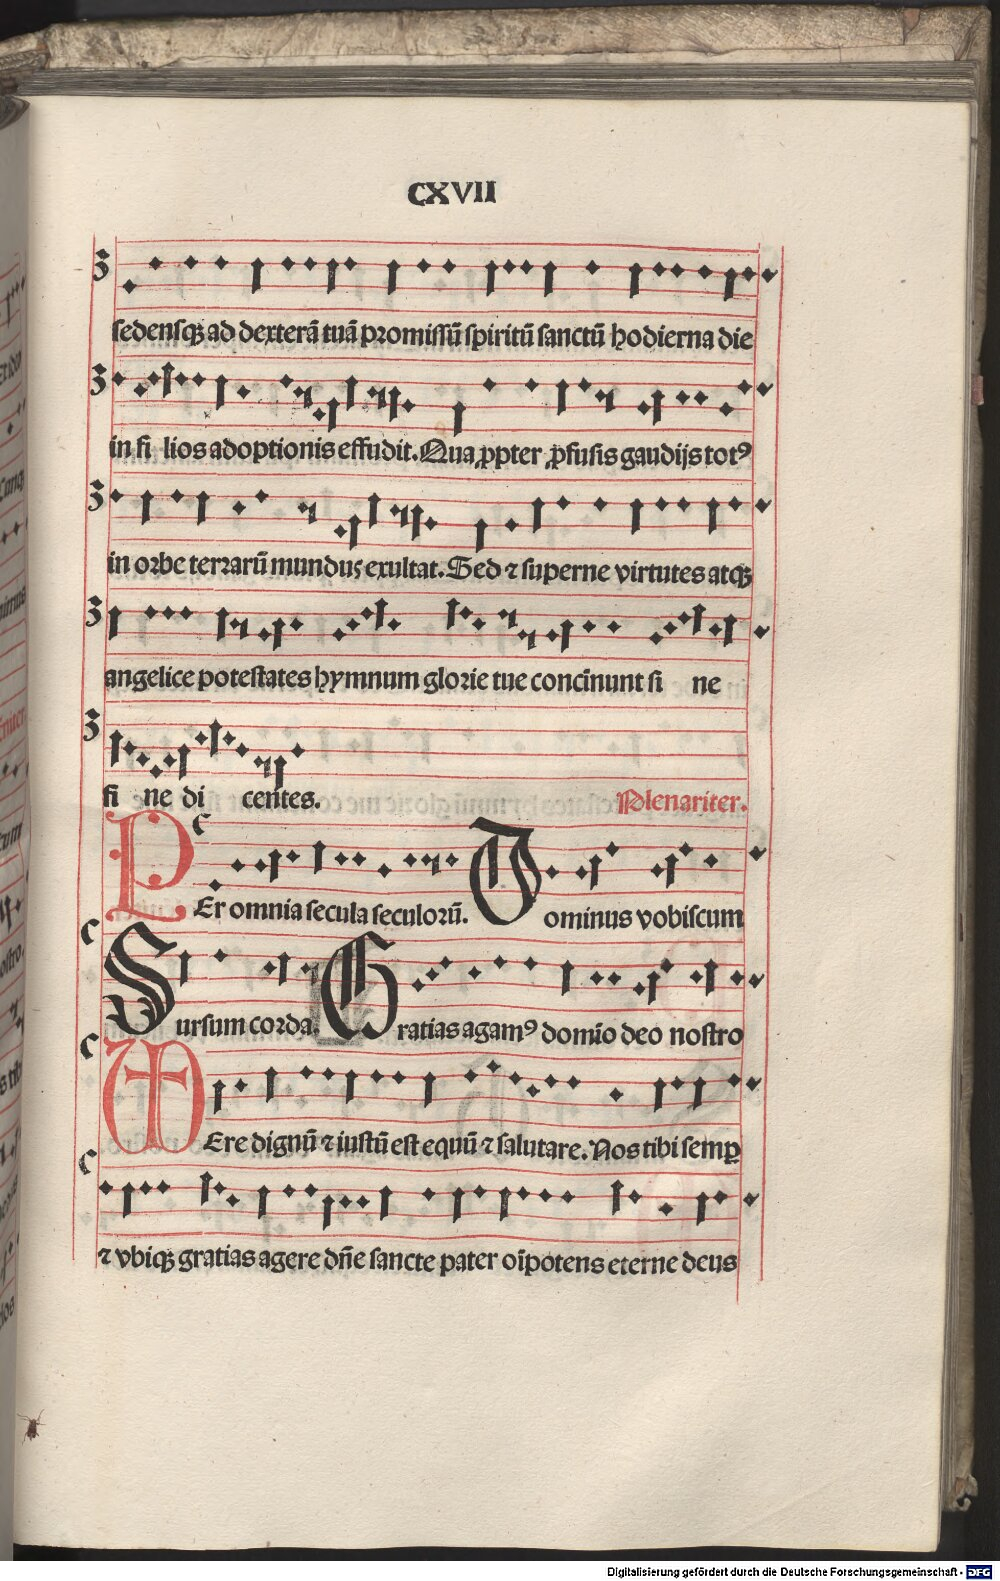 CXVII
sedensqꝫ ad dexterā tuā promissū spiritū sanctū hodierna die
in fi lios adoptionis effudit. Qua ꝓpter ꝓfusis gaudijs totꝰ
in orbe terrarū mundus exultat. Sed ⁊ superne virtutes atqꝫ
angelice potestates hymnum glorie tue concinunt si ne
fi ne di centes. Plenariter.
PEr omnia secula seculorū. Dominus vobiscum
Sursum corda. Gratias agamꝰ domīo deo nostro
VEre dignū ⁊ iustū est equū ⁊ salutare. Nos tibi semꝑ
⁊ vbiqꝫ gratias agere dn̄e sancte pater oīpotens eterne deus
Digitalisierung gefördert durch die Deutsche Forschungsgemeinschaft - DFG